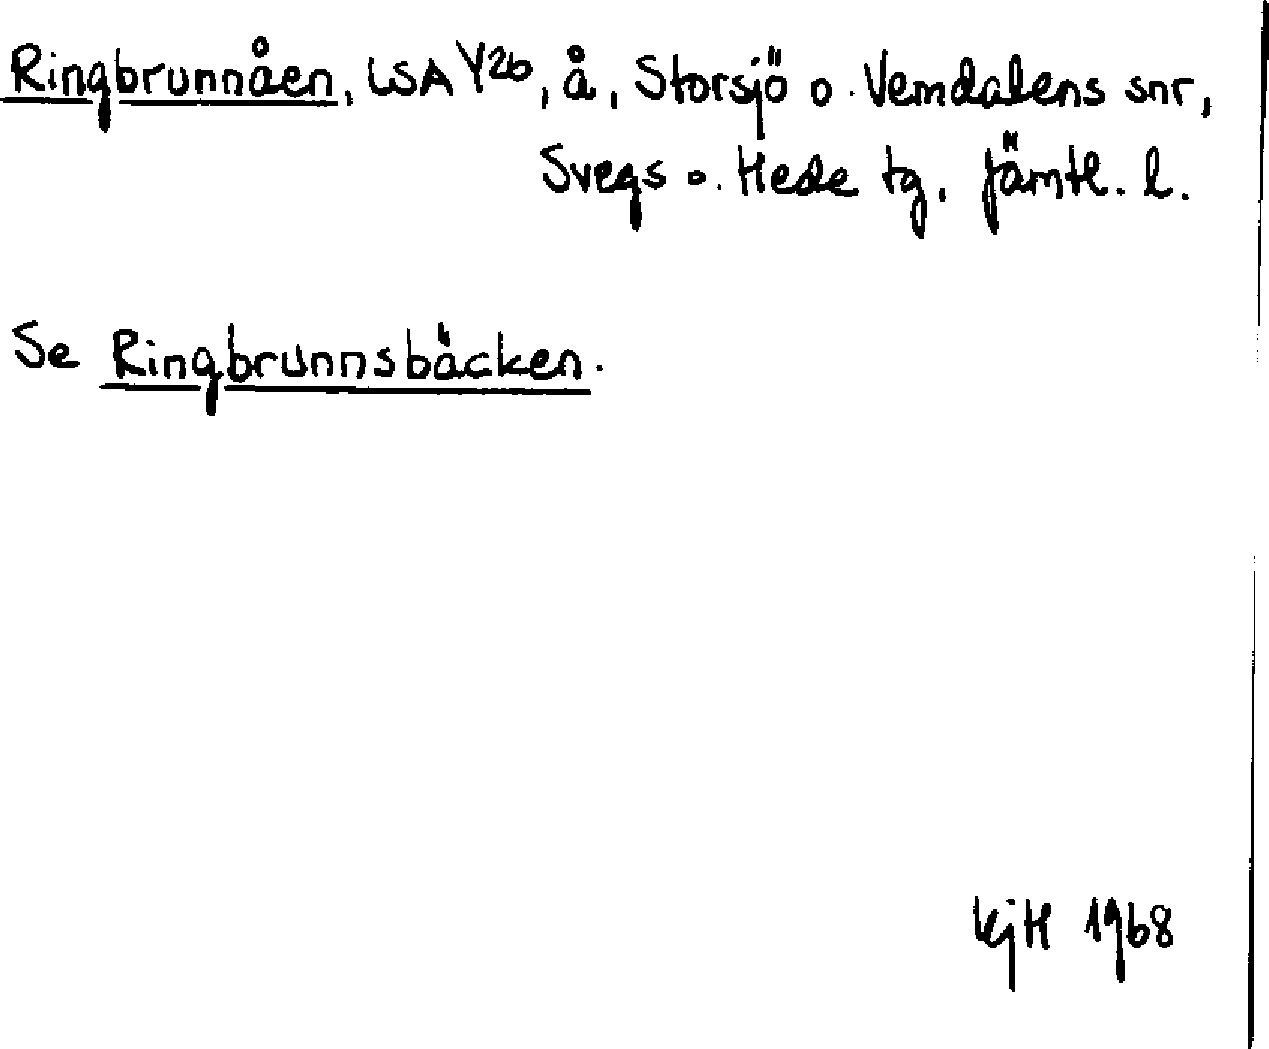 Ringbrunnåen, LSA Y26, å, Storsjö o. Vemdalens snr,
Svegs o. Hede tg, Jämtl. l.
Se Ringbrunnsbäcken.
KjH 1968